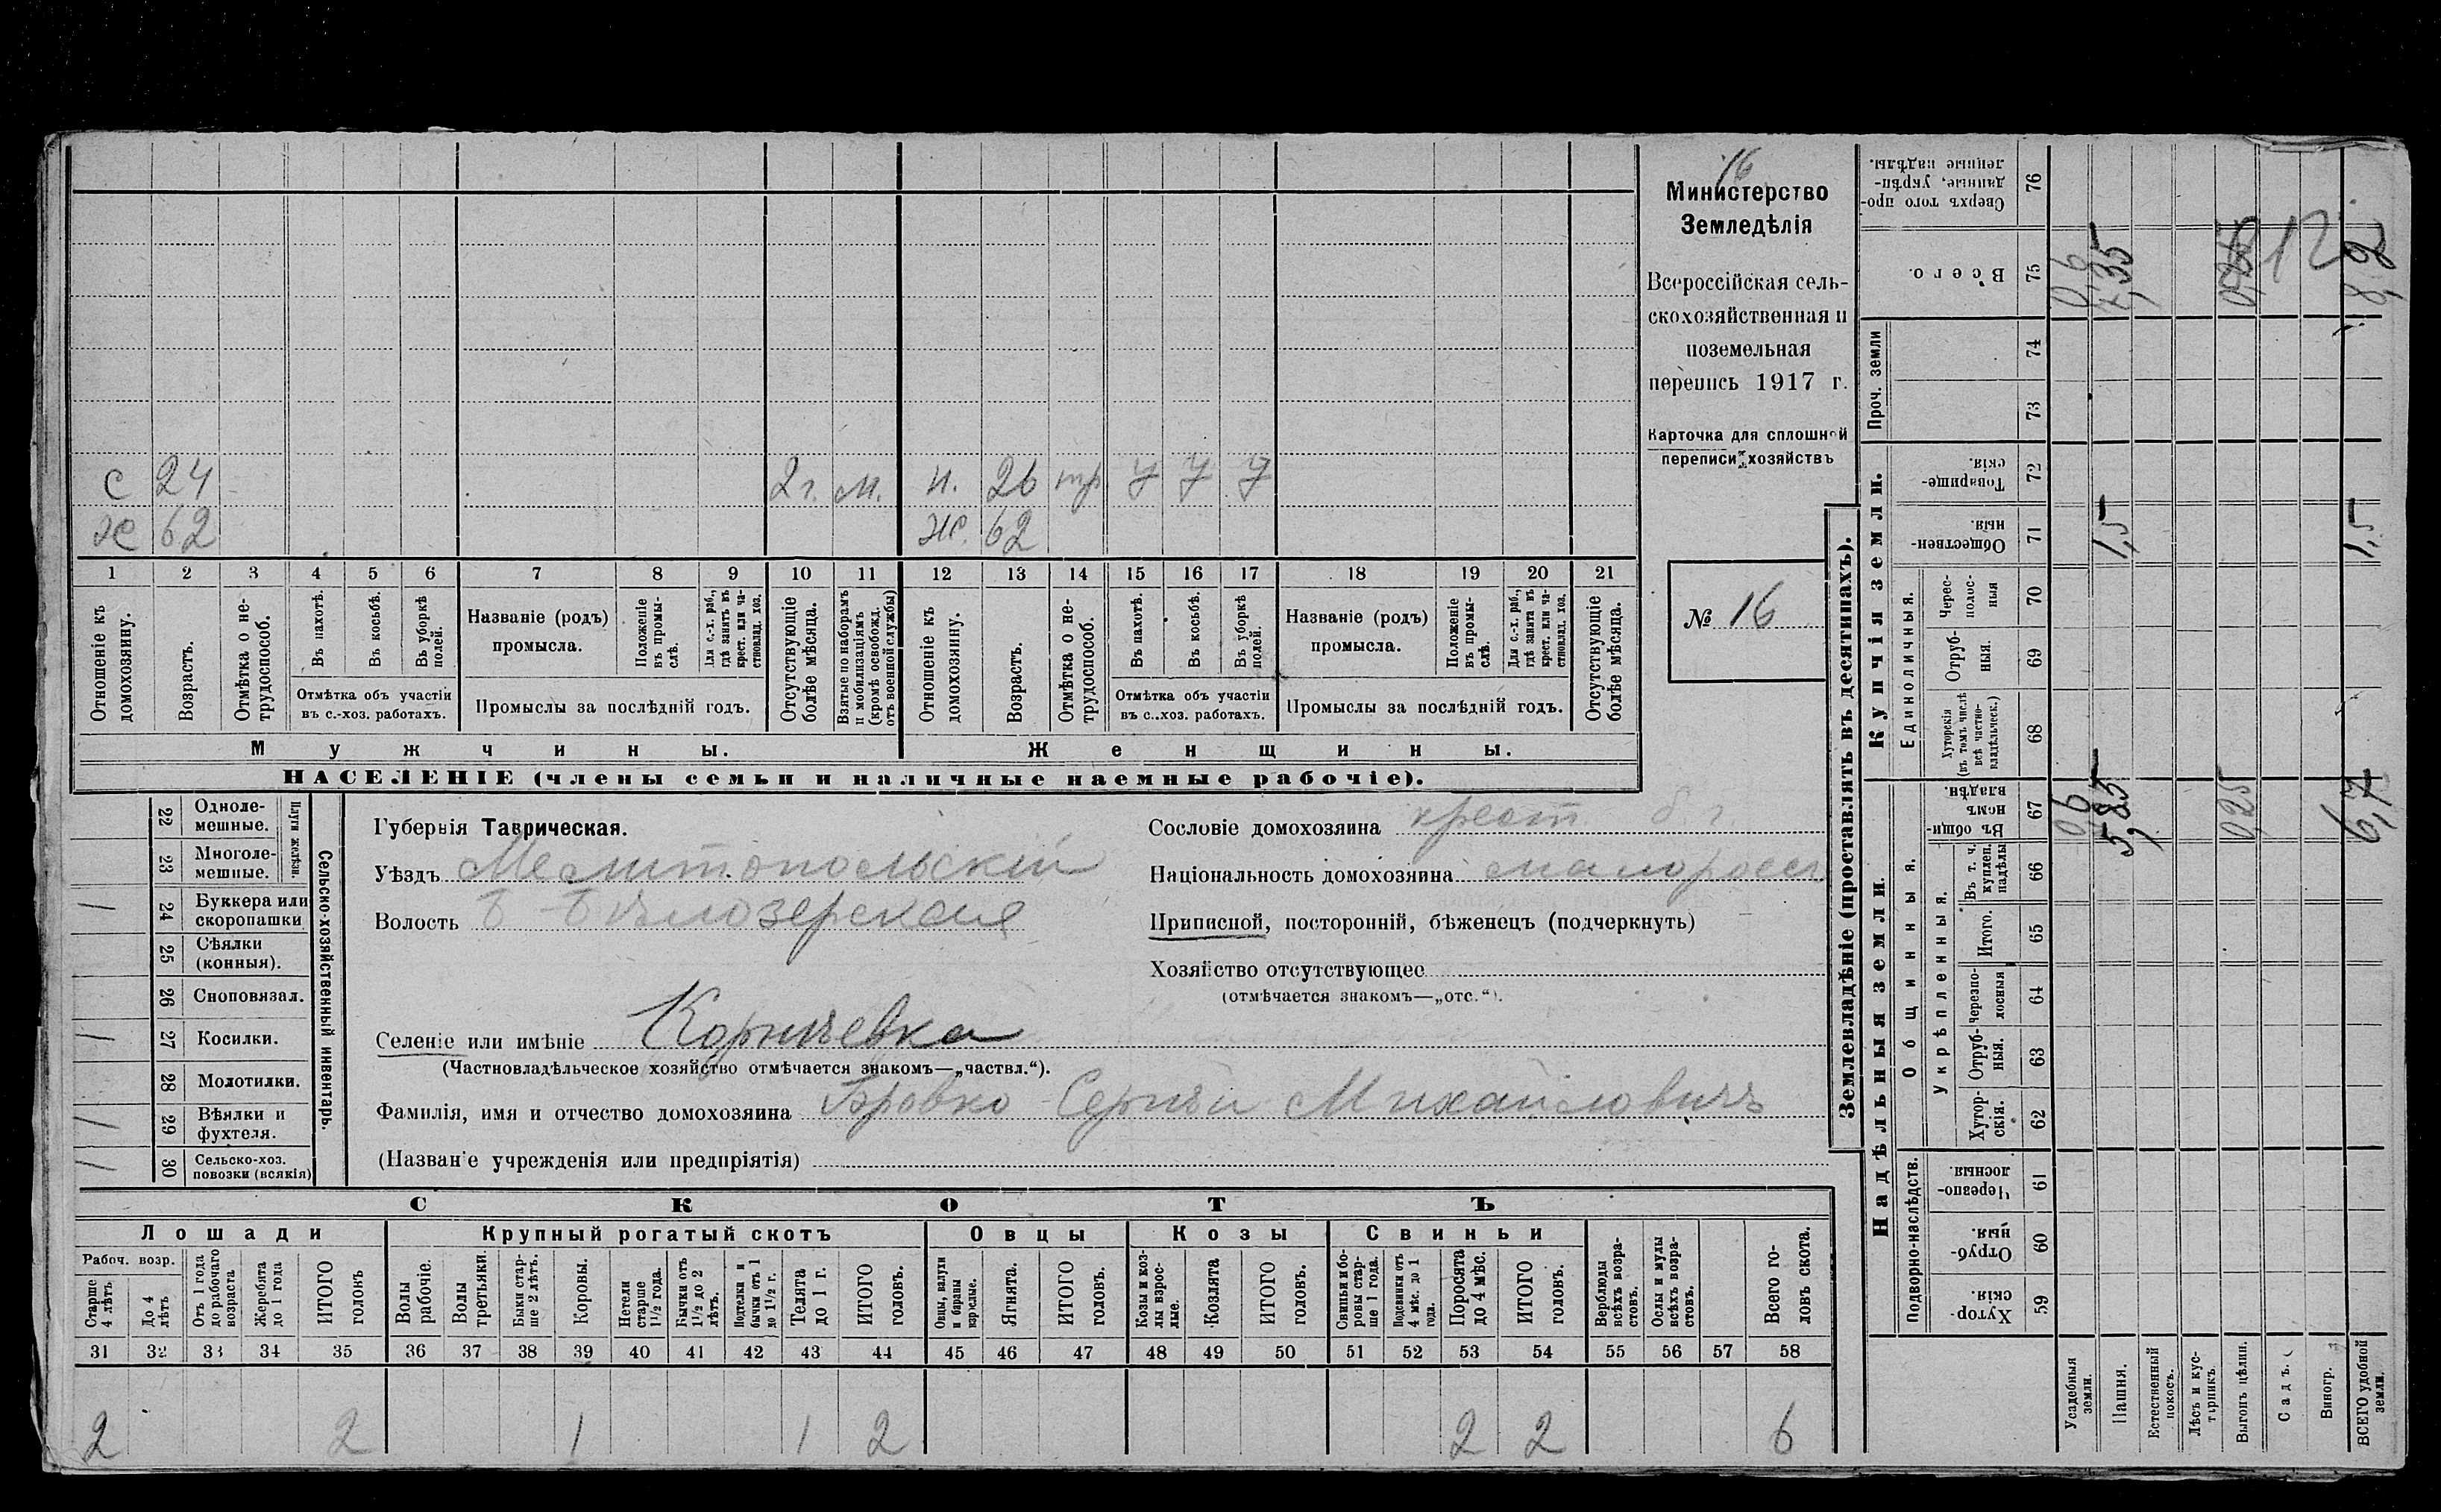 16
Министерство
Земледѣлія
Всероссійская сель-
скохозяйственная и
поземельная
перепись 1917 г.
Карточка для сплошной
переписи хозяйствъ
№ 16
с 24 2 г. м. н. 26 тр у у у
х 62 ж. 62
1 2 3 4 5 6 7 8 9 10 11 12 13 14 15 16 17 18 19 20 21
Отношеніе къ домохозяину.
Возрастъ.
Отмѣтка о не-трудоспособ.
Въ пахотѣ.
Въ косьбѣ.
Въ уборкѣ полей.
Отмѣтка объ участіи
въ с.-хоз. работахъ.
Названіе (родъ)
промысла.
Положеніе въ промы-слѣ.
Для с.-х. раб., гдѣ занятъ въ крест. или ча-стновлад. хоз.
Промыслы за послѣдній годъ.
Отсутствующіе болѣе мѣсяца.
Взятые по наборамъ и мобилизаціямъ (кромѣ освобожд. отъ военной службы)
Отношеніе къ домохозяину.
Возрастъ.
Отмѣтка о не-трудоспособ.
Въ пахотѣ.
Въ косьбѣ.
Въ уборкѣ полей.
Отмѣтка объ участіи
въ с..хоз. работахъ.
Названіе (родъ)
промысла.
Положеніе въ промы-слѣ.
Для с.-х. раб., гдѣ занята въ крест. или ча-стновлад. хоз.
Промыслы за послѣдній годъ.
Отсутствующіе болѣе мѣсяца.
Мужчины. Женщины.
НАСЕЛЕНІЕ (члены семьи и наличные наемные рабочіе).
22 Одноле-мешные.
23 Многоле-мешные.
Плуги желѣзн.
24 Буккера или скоропашки
25 Сѣялки (конныя).
26 Сноповязал.
27 Косилки.
28 Молотилки.
29 Вѣялки и фухтеля.
30 Сельско-хоз. повозки (всякія)
Сельско-хозяйственный инвентарь.
Губернія Таврическая.
Уѣздъ Мелитопольскій
Волость Б Бѣлозерская
Селеніе или имѣніе
(Частновладѣльческое хозяйство отмѣчается знакомъ—„частвл.“).
Фамилія, имя и отчество домохозяина Бровко Сергѣй Михайловичъ
(Назван'е учрежденія или предпріятія)
Сословіе домохозяина крест.
Національность домохозяина малоросс
Приписной, посторонній, бѣженецъ (подчеркнуть)
Хозяйство отсутствующее
(отмѣчается знакомъ—„отс.“).
СКОТЪ
Лошади Крупный рогатый скотъ Овцы Козы Свиньи
Рабоч. возр.
Старше 4 лѣтъ
До 4 лѣтъ
Отъ 1 года до рабочаго возраста
Жеребята до 1 года
ИТОГО головъ
Волы рабочіе.
Волы третьяки.
Быки стар-ше 2 лѣтъ.
Коровы.
Нетели старше 1½ года.
Бычки отъ 1½ до 2 лѣтъ.
Нетелки и бычки отъ 1 до 1½ г.
Телята до 1 г.
ИТОГО головъ.
Овцы, валухи и бараны взрослые.
Ягнята.
ИТОГО головъ.
Козы и коз-лы взрос-лые.
Козлята
ИТОГО головъ.
Свиньи и бо-ровы стар-ше 1 года.
Подсвинки отъ 4 мѣс. до 1 года.
Поросята до 4 мѣс.
ИТОГО головъ.
Верблюды всѣхъ возра-стовъ.
Ослы и мулы всѣхъ возра-стовъ.
Всего го-ловъ скота.
31 32 33 34 35 36 37 38 39 40 41 42 43 44 45 46 47 48 49 50 51 52 53 54 55 56 57 58
2 2 1 1 2 2 2 6
Землевладѣніе (проставлять въ десятинахъ).
Надѣльныя земли. Купчія земли. Проч. земли
Подворно-наслѣдств. Общинныя. Укрѣпленныя. Единоличныя.
59 Хутор-скія.
60 Отруб-ныя.
61 Черезпо-лосныя.
62 Хутор-скія.
63 Отруб-ныя.
64 Черезпо-лосныя
65 Итого.
66 Въ т. ч. куплен. надѣлы
67 Въ общи-номъ владѣн.
68 Хуторскія (въ томъ числѣ всѣ частно-владѣльческ.)
69 Отруб-ныя.
70 Черес-полос-ныя
71 Обществен-ныя.
72 Товарище-скія.
73
74
75 Всего.
76 Сверхъ того про-данные, укрѣп-ленные надѣлы.
Усадебныя земли. 0,6 0,6
Пашня. 5,85 1,5 7,35
Естественный покосъ.
Лѣсъ и кус-тарникъ.
Выгонъ цѣлин. 0,25 0,25
Садъ. 12
Виногр.
ВСЕГО удобной земли. 6,7 1,5 8,2